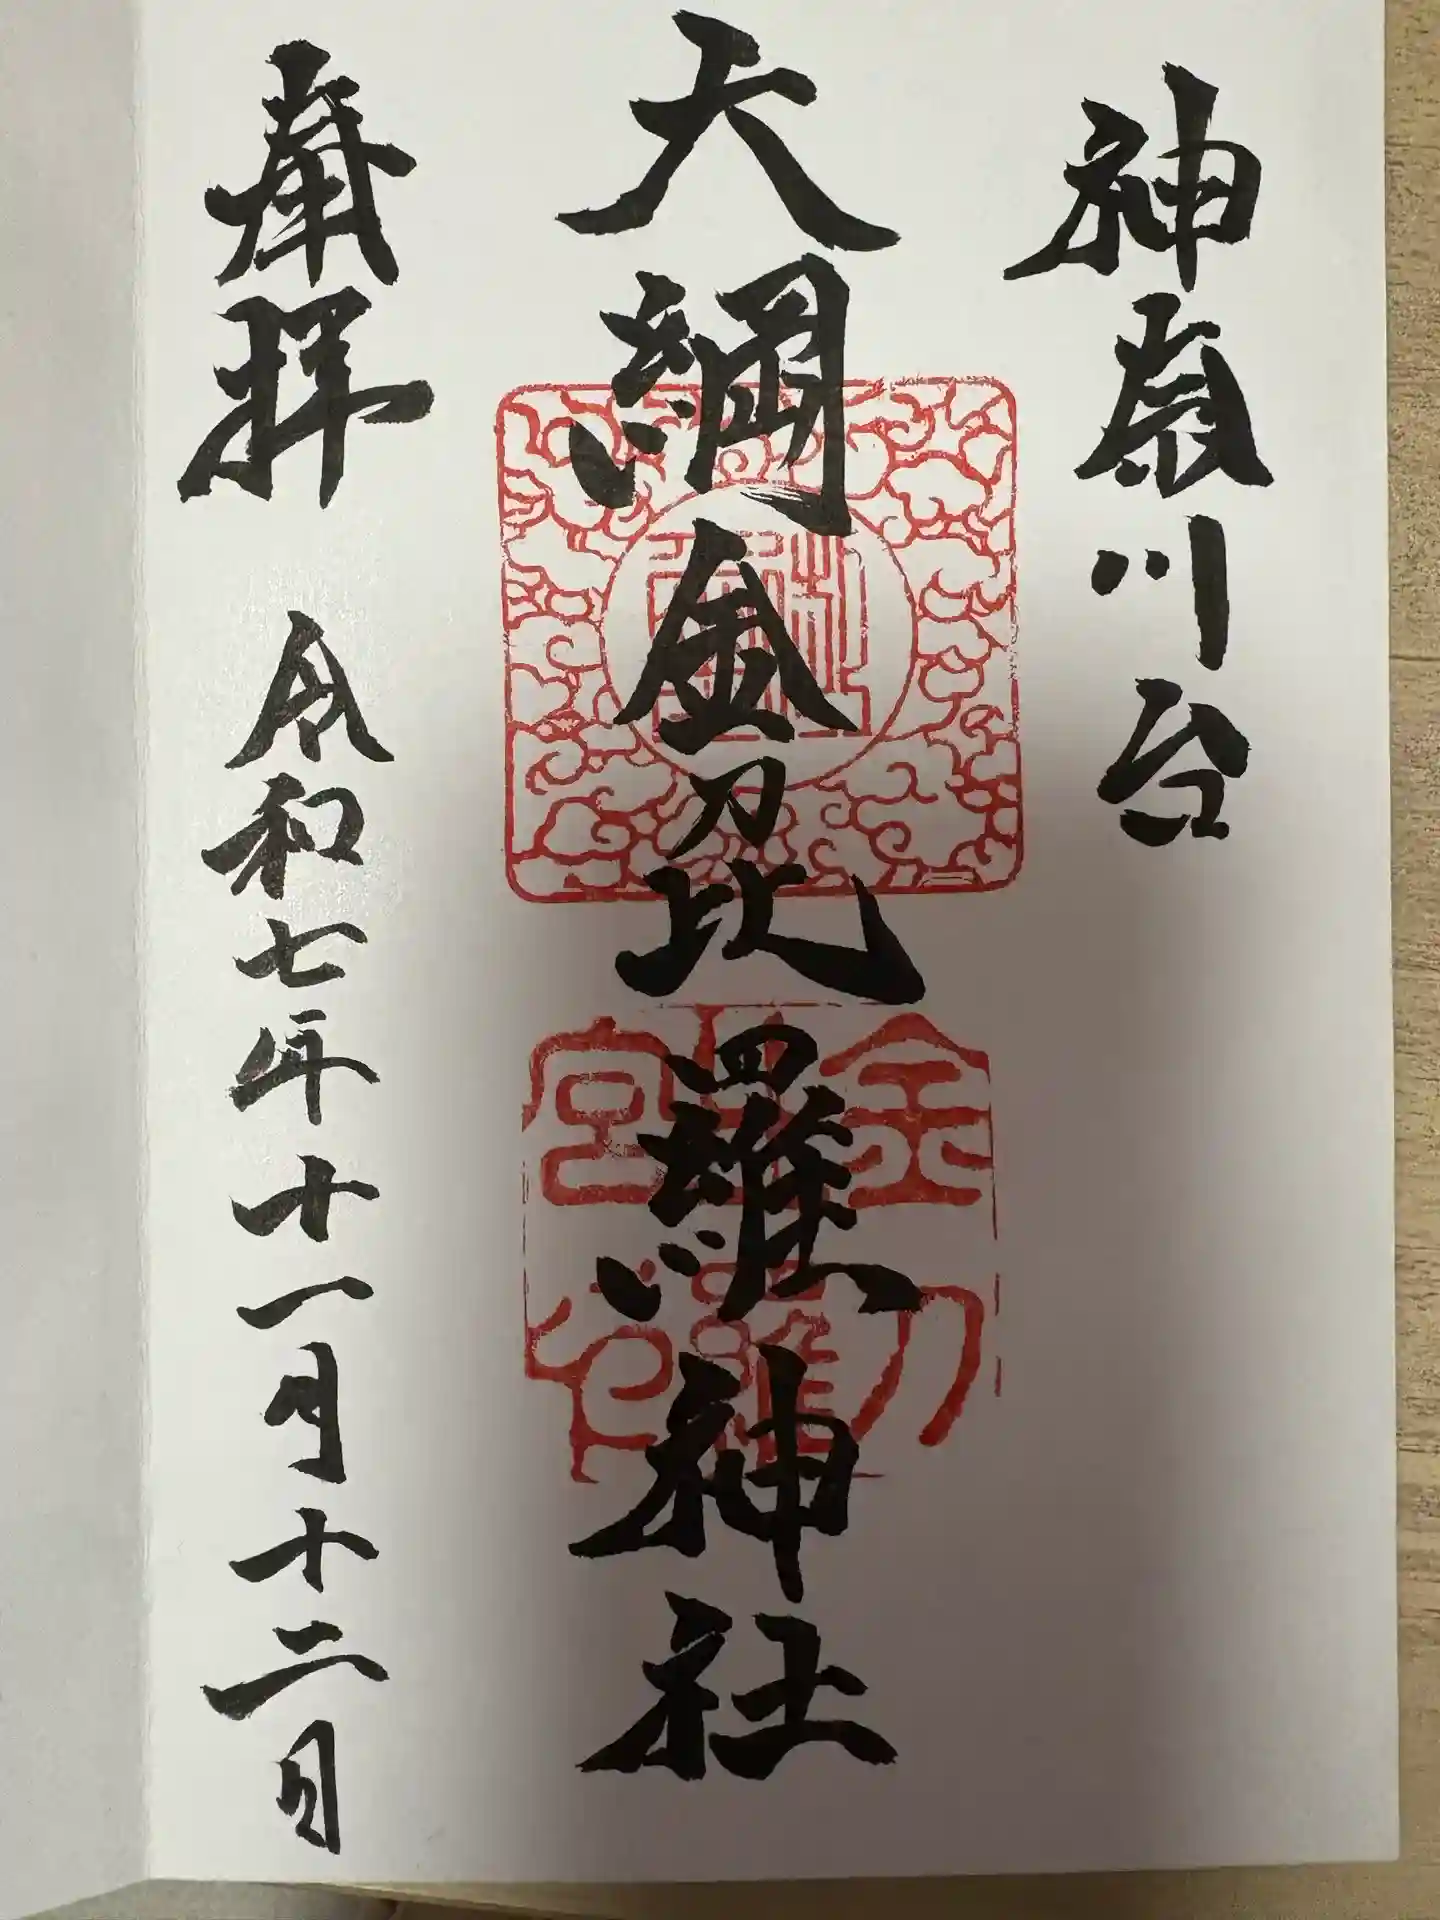 神奈川台
大綱金刀比羅神社
奉拝 令和七年十一月十二日